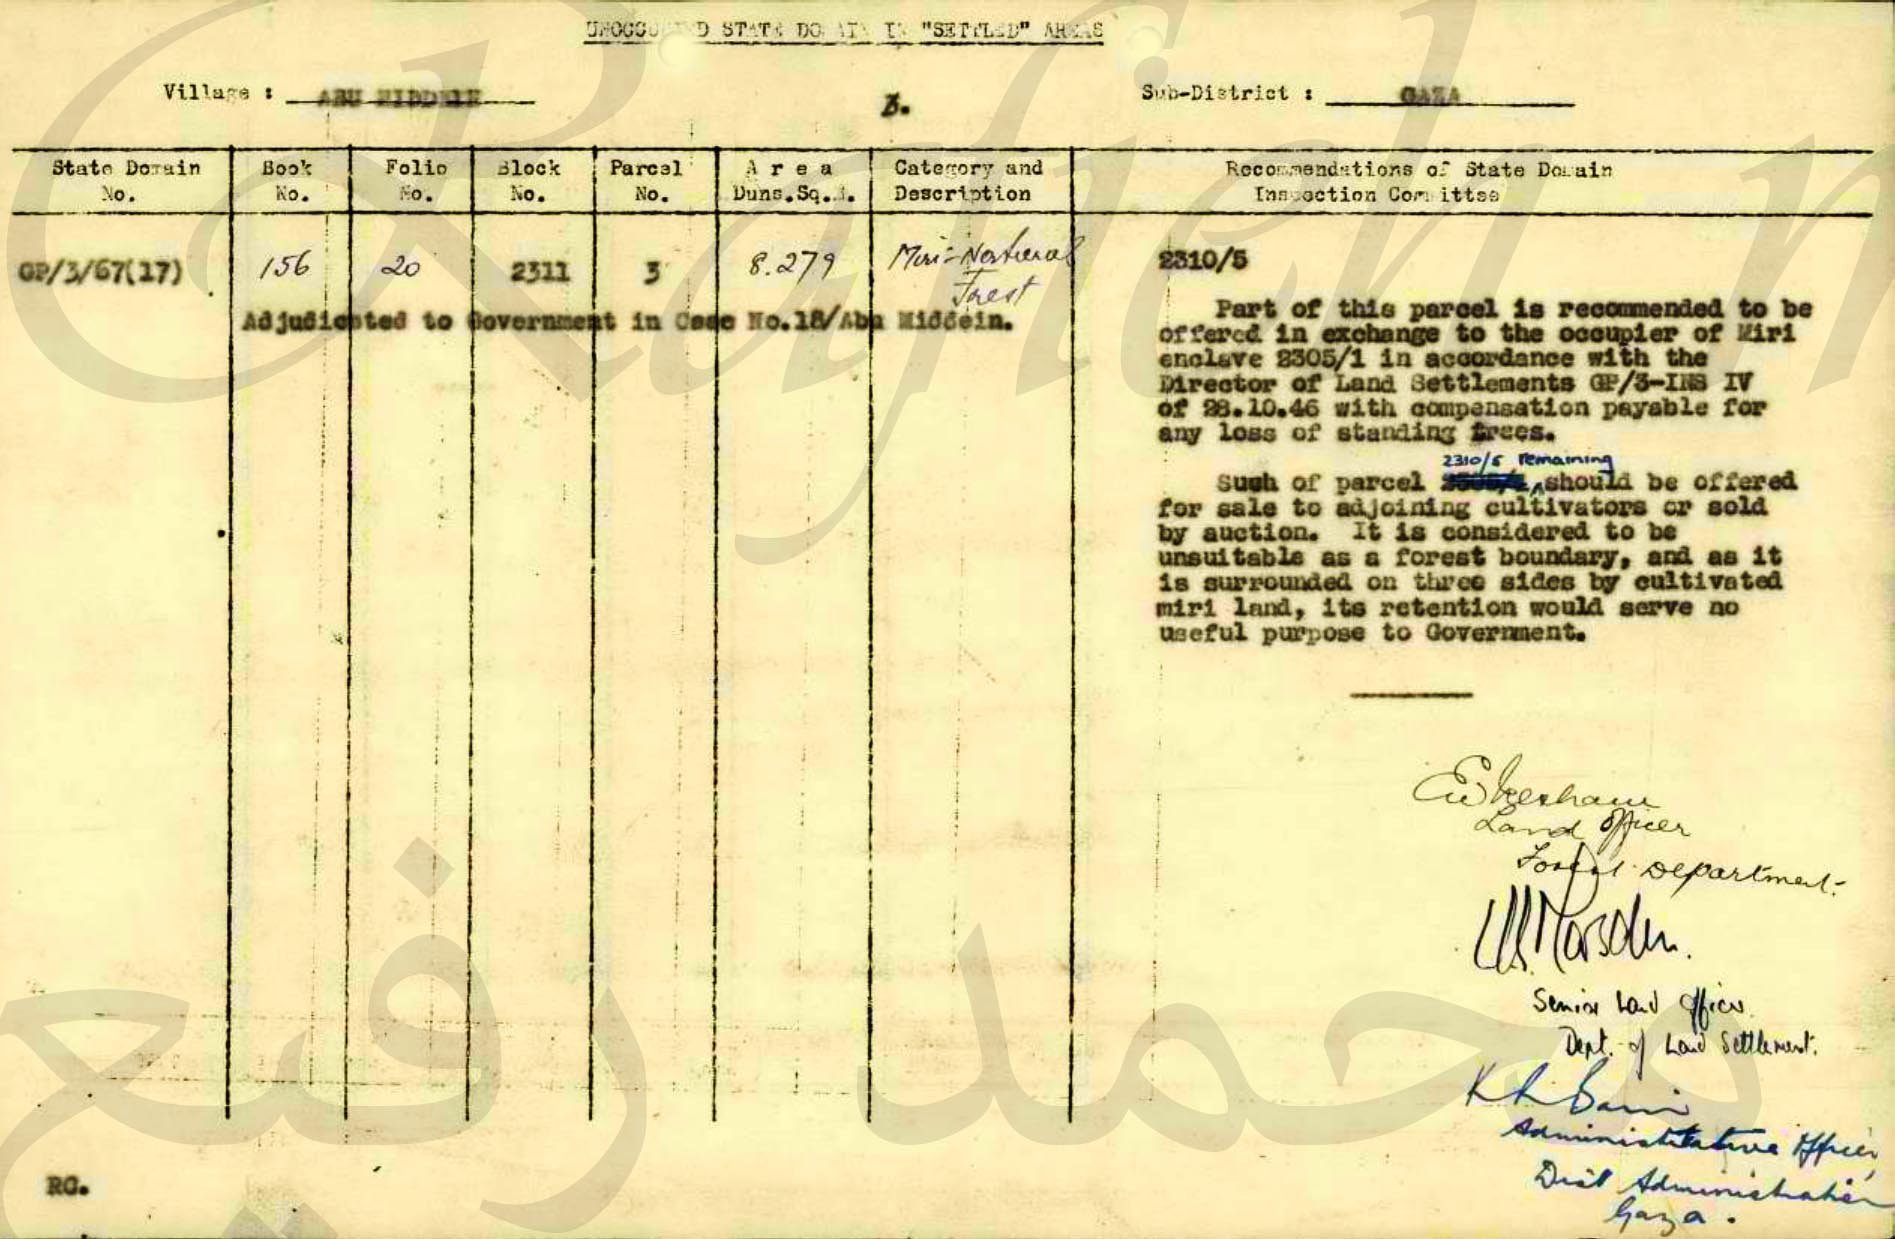 UNOCCUPIED STATE DOMAIN IN "SETTLED" AREAS
Village : ABU MIDDEIN
3.
Sub-District : GAZA
State Domain No.
Book No.
Folio No.
Block No.
Parcel No.
Area Duns.Sq.M.
Category and Description
Recommendations of State Domain Inspection Committee
GP/3/67(17) 156 20 2311 3 8.279 Miri-Natural
Forest
Adjudicated to Government in Case No.18/Abu Middein.
2310/5
Part of this parcel is recommended to be
offered in exchange to the occupier of Miri
enclave 2305/1 in accordance with the
Director of Land Settlements GP/3-INS IV
of 28.10.46 with compensation payable for
any loss of standing trees.
2310/5 remaining
Such of parcel should be offered
for sale to adjoining cultivators or sold
by auction. It is considered to be
unsuitable as a forest boundary, and as it
is surrounded on three sides by cultivated
miri land, its retention would serve no
useful purpose to Government.
Land Officer
Forest Department.
Marsden.
Senior Land Officer
Dept. of Land Settlement.
Administrative Officer
Dist Administration
Gaza.
RG.
Rafieh
محمد رفيع